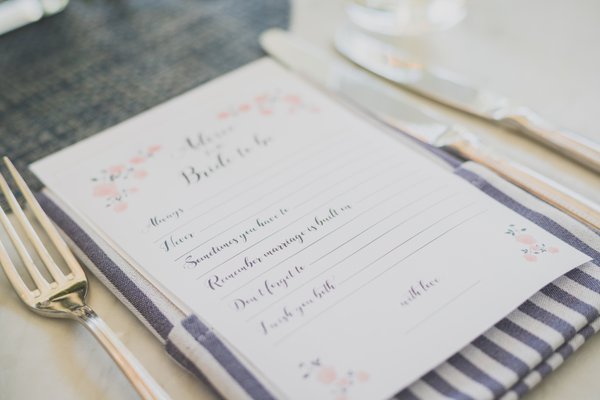 Advice
for the
Bride to be
Always
Never
Sometimes you have to
Remember marriage is built on
Don't forget to
I wish you both
with love